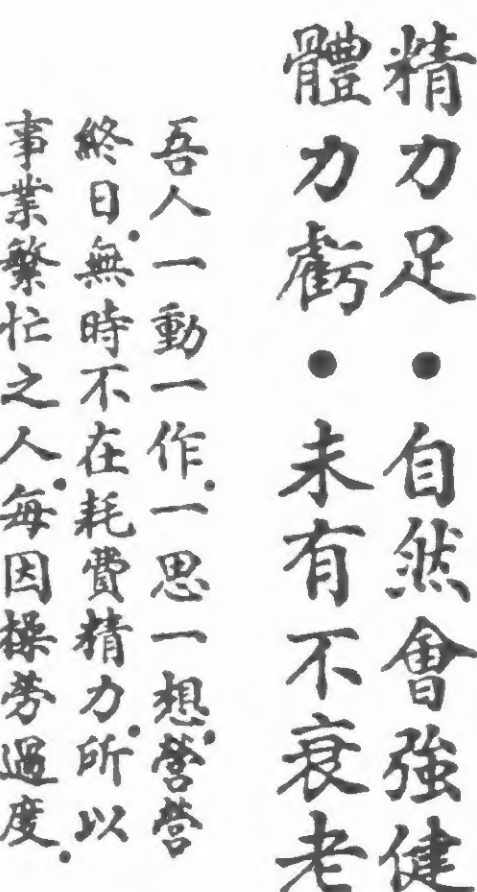 精力足•自然會強健
體力虧•未有不衰老
吾人一動一作.一思一想.營營
終日.無時不在耗費精力.所以
事業繁忙之人.每因操勞過度.